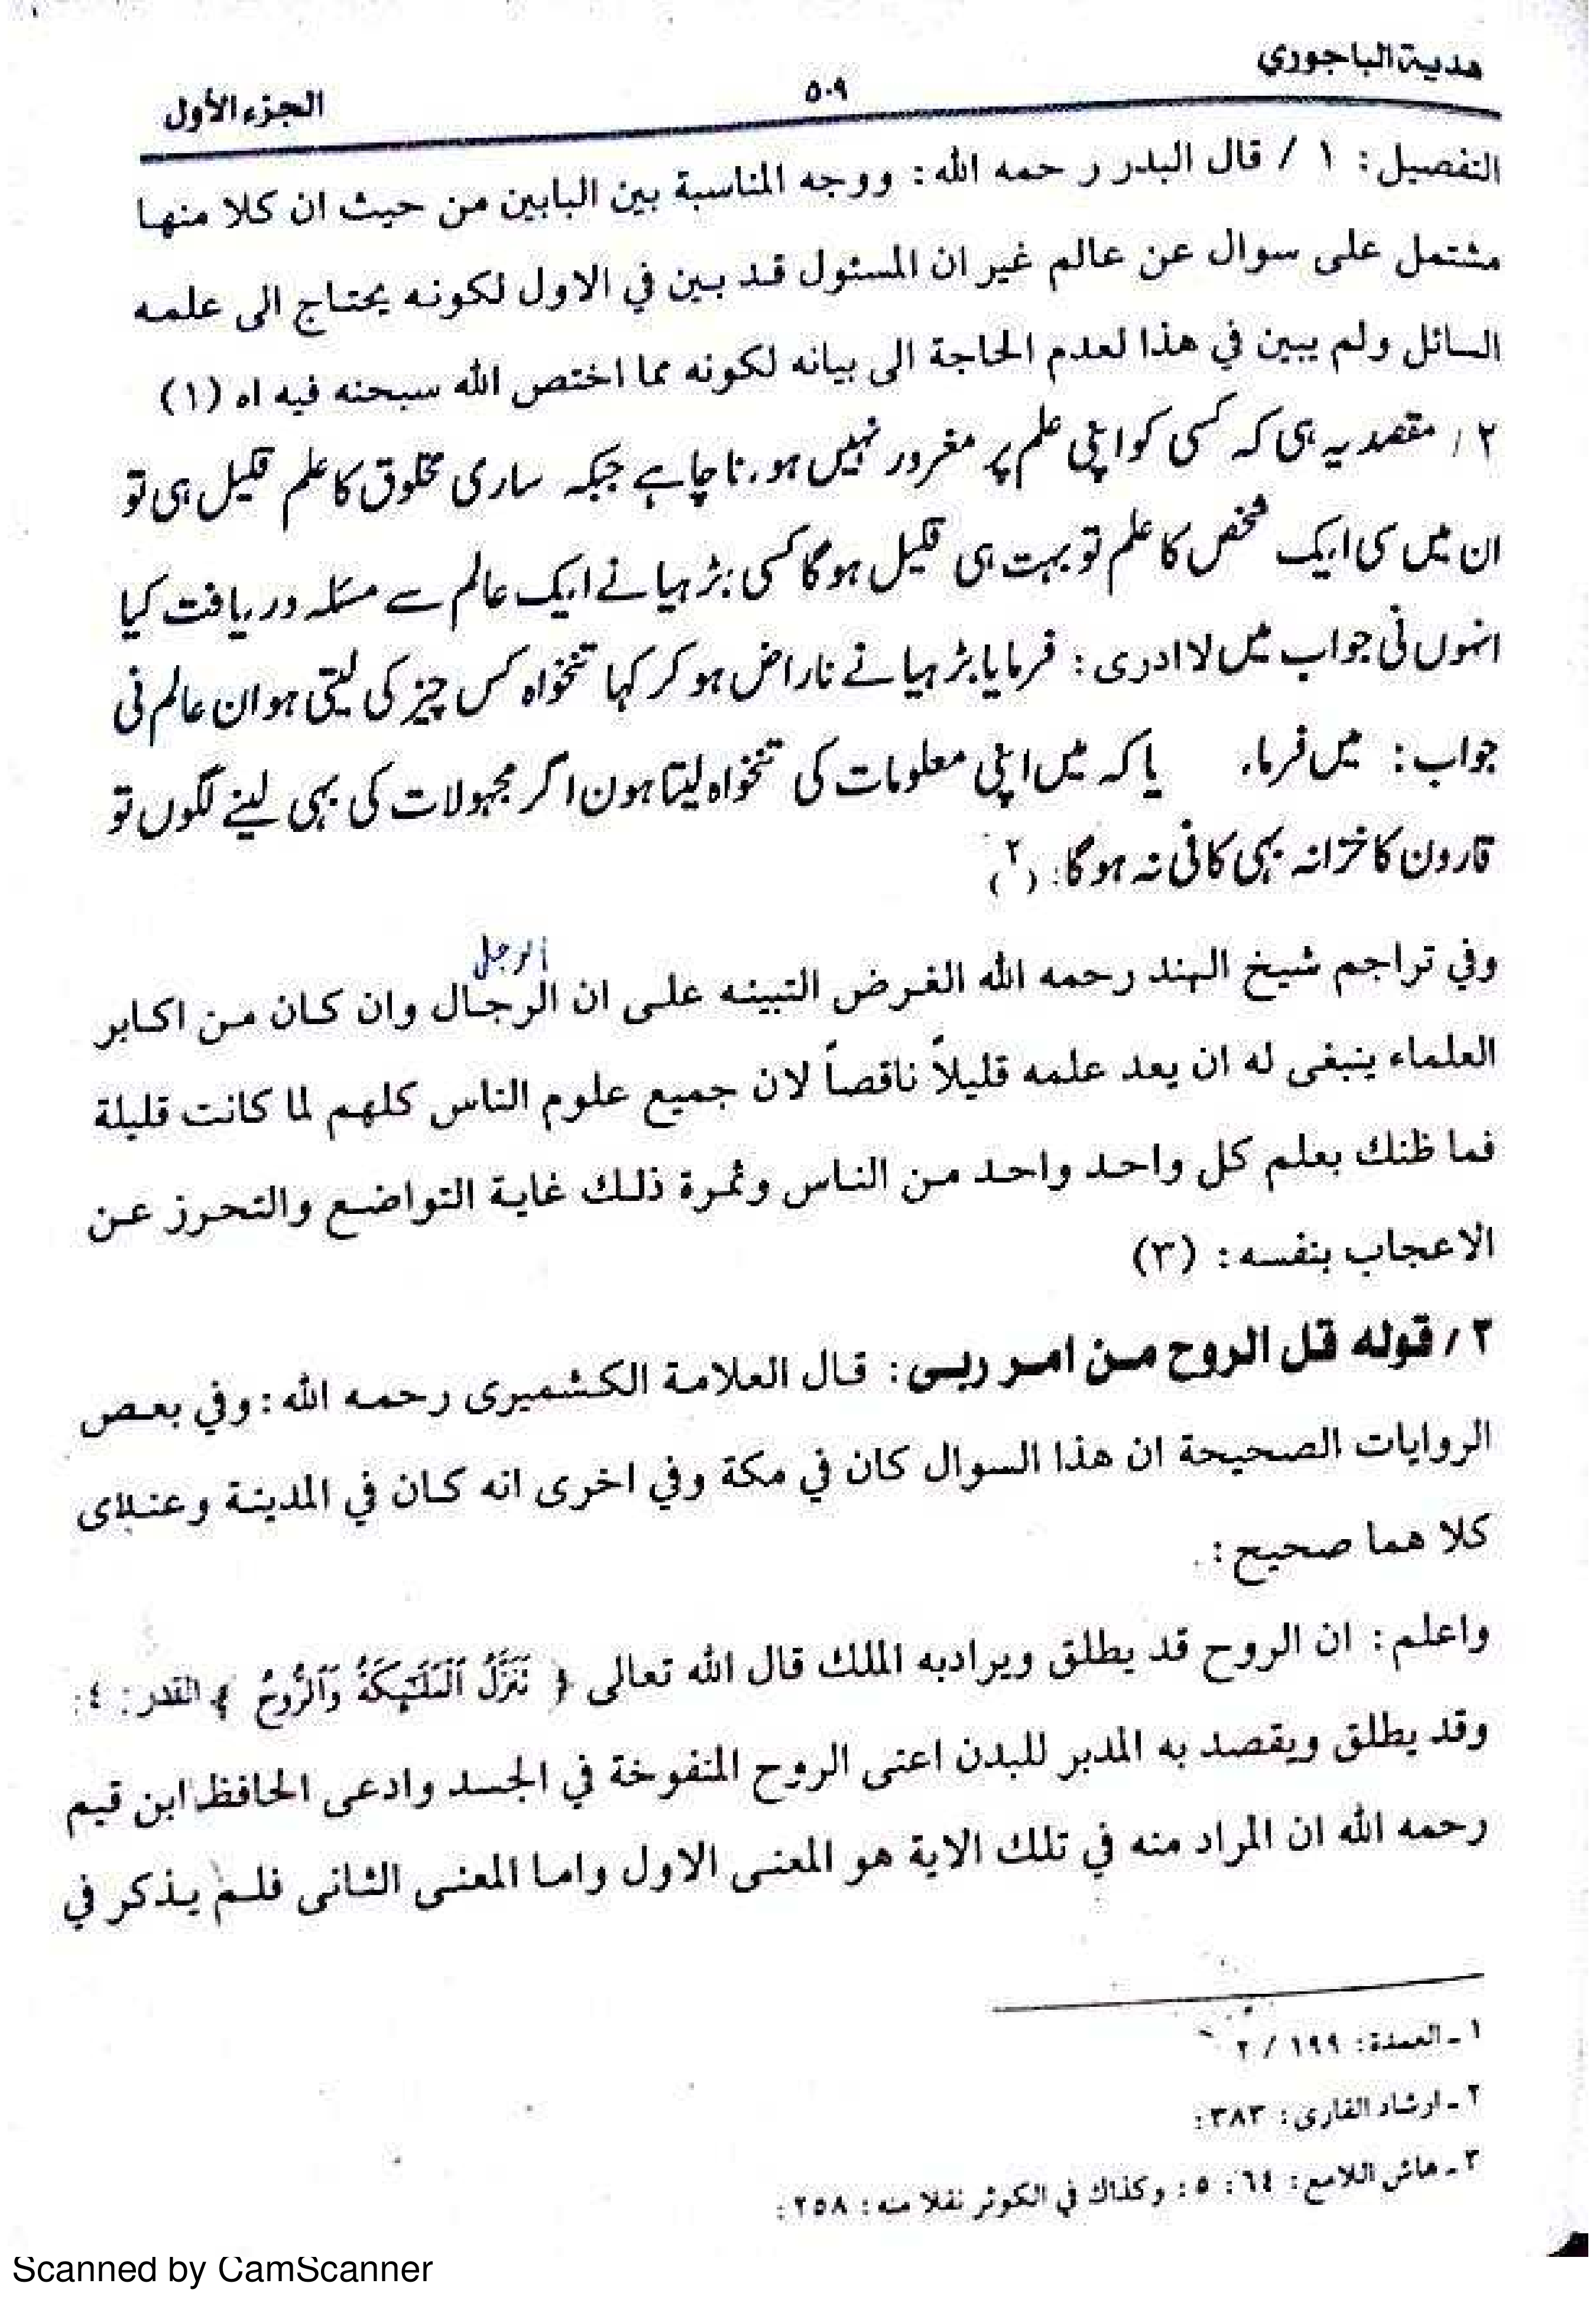 هدية الباجوري
٥٠٩
الجزء الأول
التفصيل: ١ / قال البدر رحمه الله: ووجه المناسبة بين البابين من حيث ان كلا منها
مشتمل على سوال عن عالم غير ان المسئول قد بين في الاول لكونه يحتاج الى علمه
السائل ولم يبين في هذا لعدم الحاجة الى بيانه لكونه مما اختص الله سبحنه فيه اه (١)
٢ / مقصد یہ ہی کہ کسی کو اپنی علم پر مغرور نہیں ہونا چاہے جبکہ ساری مخلوق کا علم قلیل ہی تو
ان میں کی ایک شخص کا علم تو بہت ہی قلیل ہوگا کسی بڑہیا نے ایک عالم سے مسئلہ دریافت کیا
انہوں نی جواب میں لا ادری: فرمایا بڑہیا نے ناراض ہو کر کہا تنخواہ کس چیز کی لیتی ہو ان عالم نی
جواب: میں فرما یا کہ میں اپنی معلومات کی تنخواہ لیتا ہون اگر مجہولات کی بہی لینے لگوں تو
قارون کا خزانہ بہی کافی نہ ہوگا: (٢)
الرجل
وفي تراجم شيخ الهند رحمه الله الغرض التبينه على ان الرجال وان كان من اكابر
العلماء ينبغى له ان يعد علمه قليلاً ناقصاً لان جميع علوم الناس كلهم لما كانت قليلة
فما ظنك بعلم كل واحد واحد من الناس وثمرة ذلك غاية التواضع والتحرز عن
الاعجاب بنفسه: (٣)
٢ / قوله قل الروح من امر ربى: قال العلامة الكشميرى رحمه الله: وفي بعض
الروايات الصحيحة ان هذا السوال كان في مكة وفي اخرى انه كان في المدينة وعندى
كلا هما صحيح:
واعلم: ان الروح قد يطلق ويرادبه الملك قال الله تعالى ﴿ تَنَزَّلُ ٱلْمَلَٰٓئِكَةُ وَٱلرُّوحُ ﴾ القدر: ٤:
وقد يطلق ويقصد به المدبر للبدن اعنى الروح المنفوخة في الجسد وادعى الحافظ ابن قيم
رحمه الله ان المراد منه في تلك الاية هو المعنى الاول واما المعنى الثانى فلم يذكر في
١ ـ العمدة: ١٩٩ / ٢
٢ ـ ارشاد القارى: ٣٨٣:
٣ ـ هاش اللامع: ٦٤: ٥: وكذاك في الكوثر نفلا منه: ٢٥٨:
Scanned by CamScanner